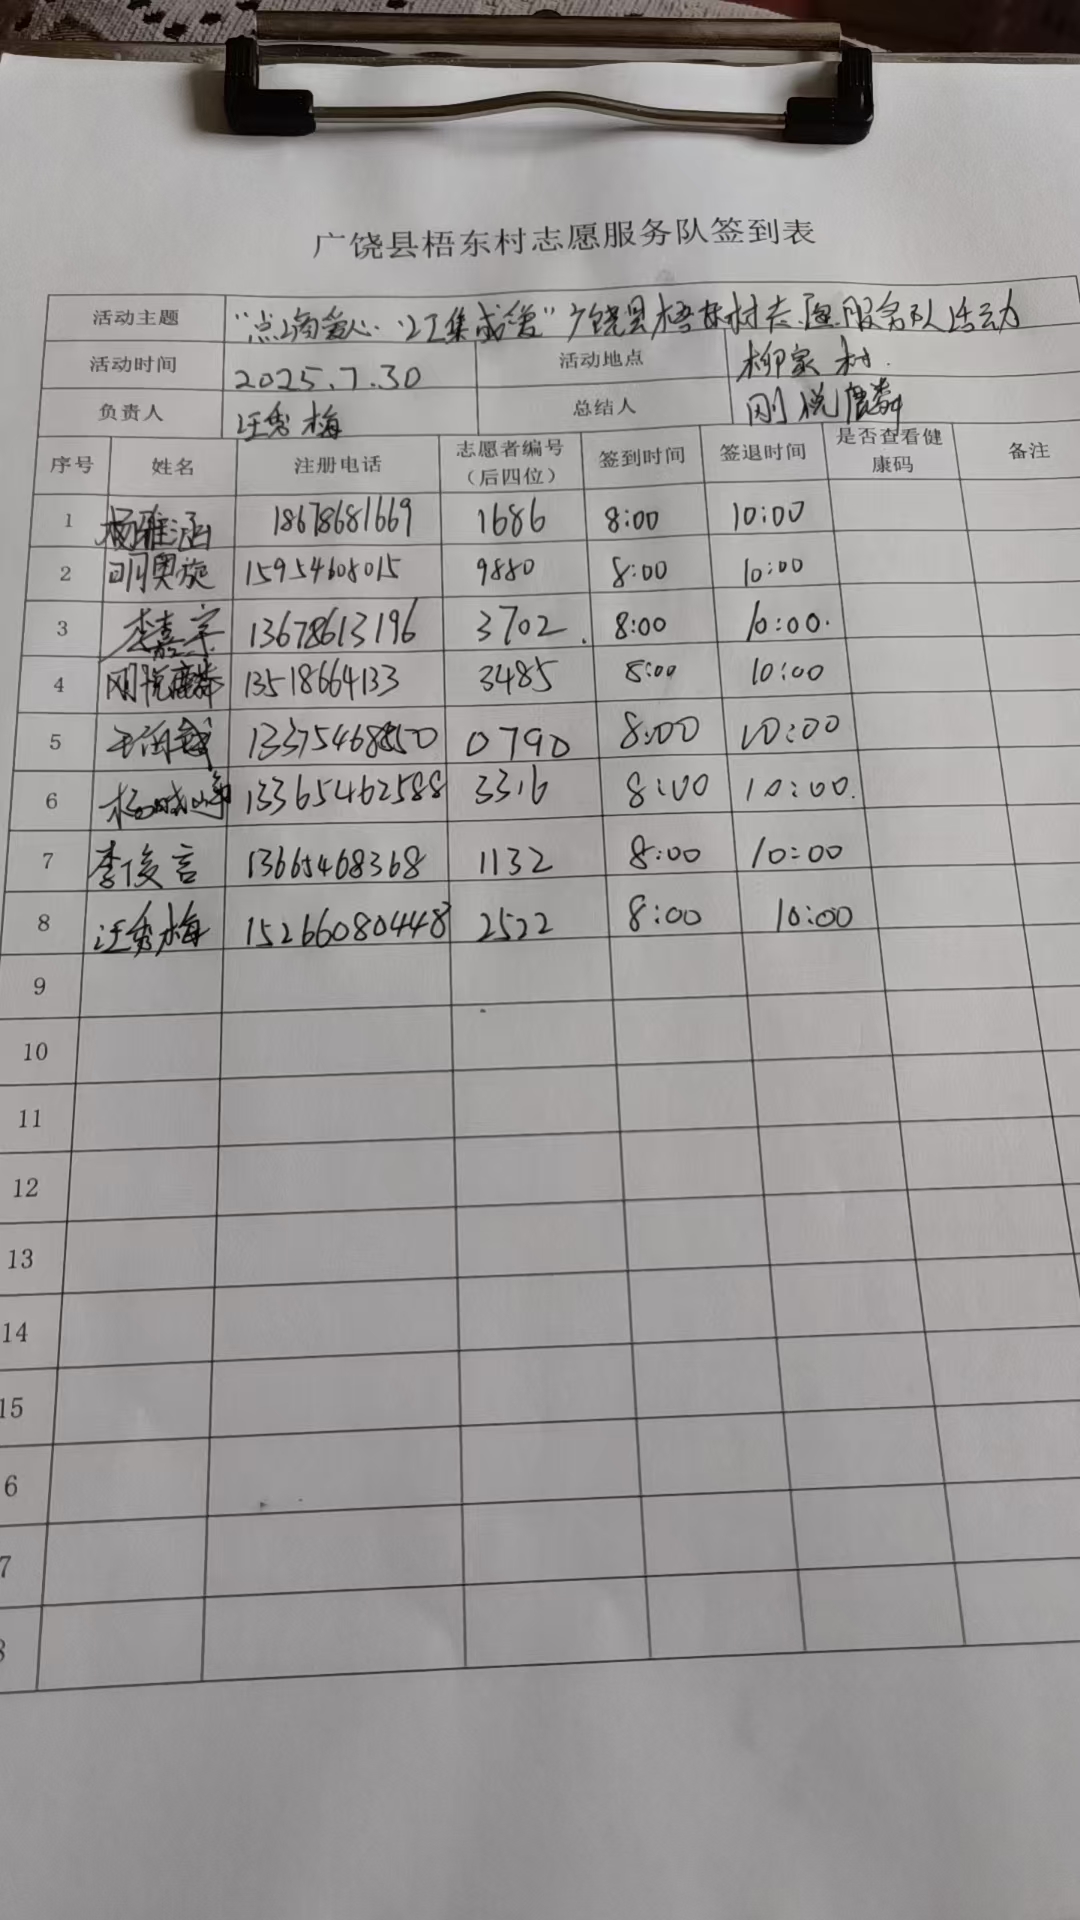 广饶县梧东村志愿服务队签到表
活动主题 "点滴爱心·汇集成爱"广饶县梧东村志愿服务队活动
活动时间 2025.7.30 活动地点 柳家村.
负责人 汪秀梅 总结人 刚悦麟
序号 姓名 注册电话 志愿者编号（后四位） 签到时间 签退时间 是否查看健康码 备注
1 杨雅涵 18678681669 1686 8:00 10:00
2 明奥旋 15954608015 9880 8:00 10:00
3 李嘉宗 13678613196 3702. 8:00 10:00.
4 刚悦麟 13518664133 3485 8:00 10:00
5 13375468850 0790 8:00 10:00
6 杨 13365462588 3316 8:00 10:00.
7 李俊言 13665468368 1132 8:00 10:00
8 汪秀梅 15266080448 2522 8:00 10:00
9
10
11
12
13
14
15
6
7